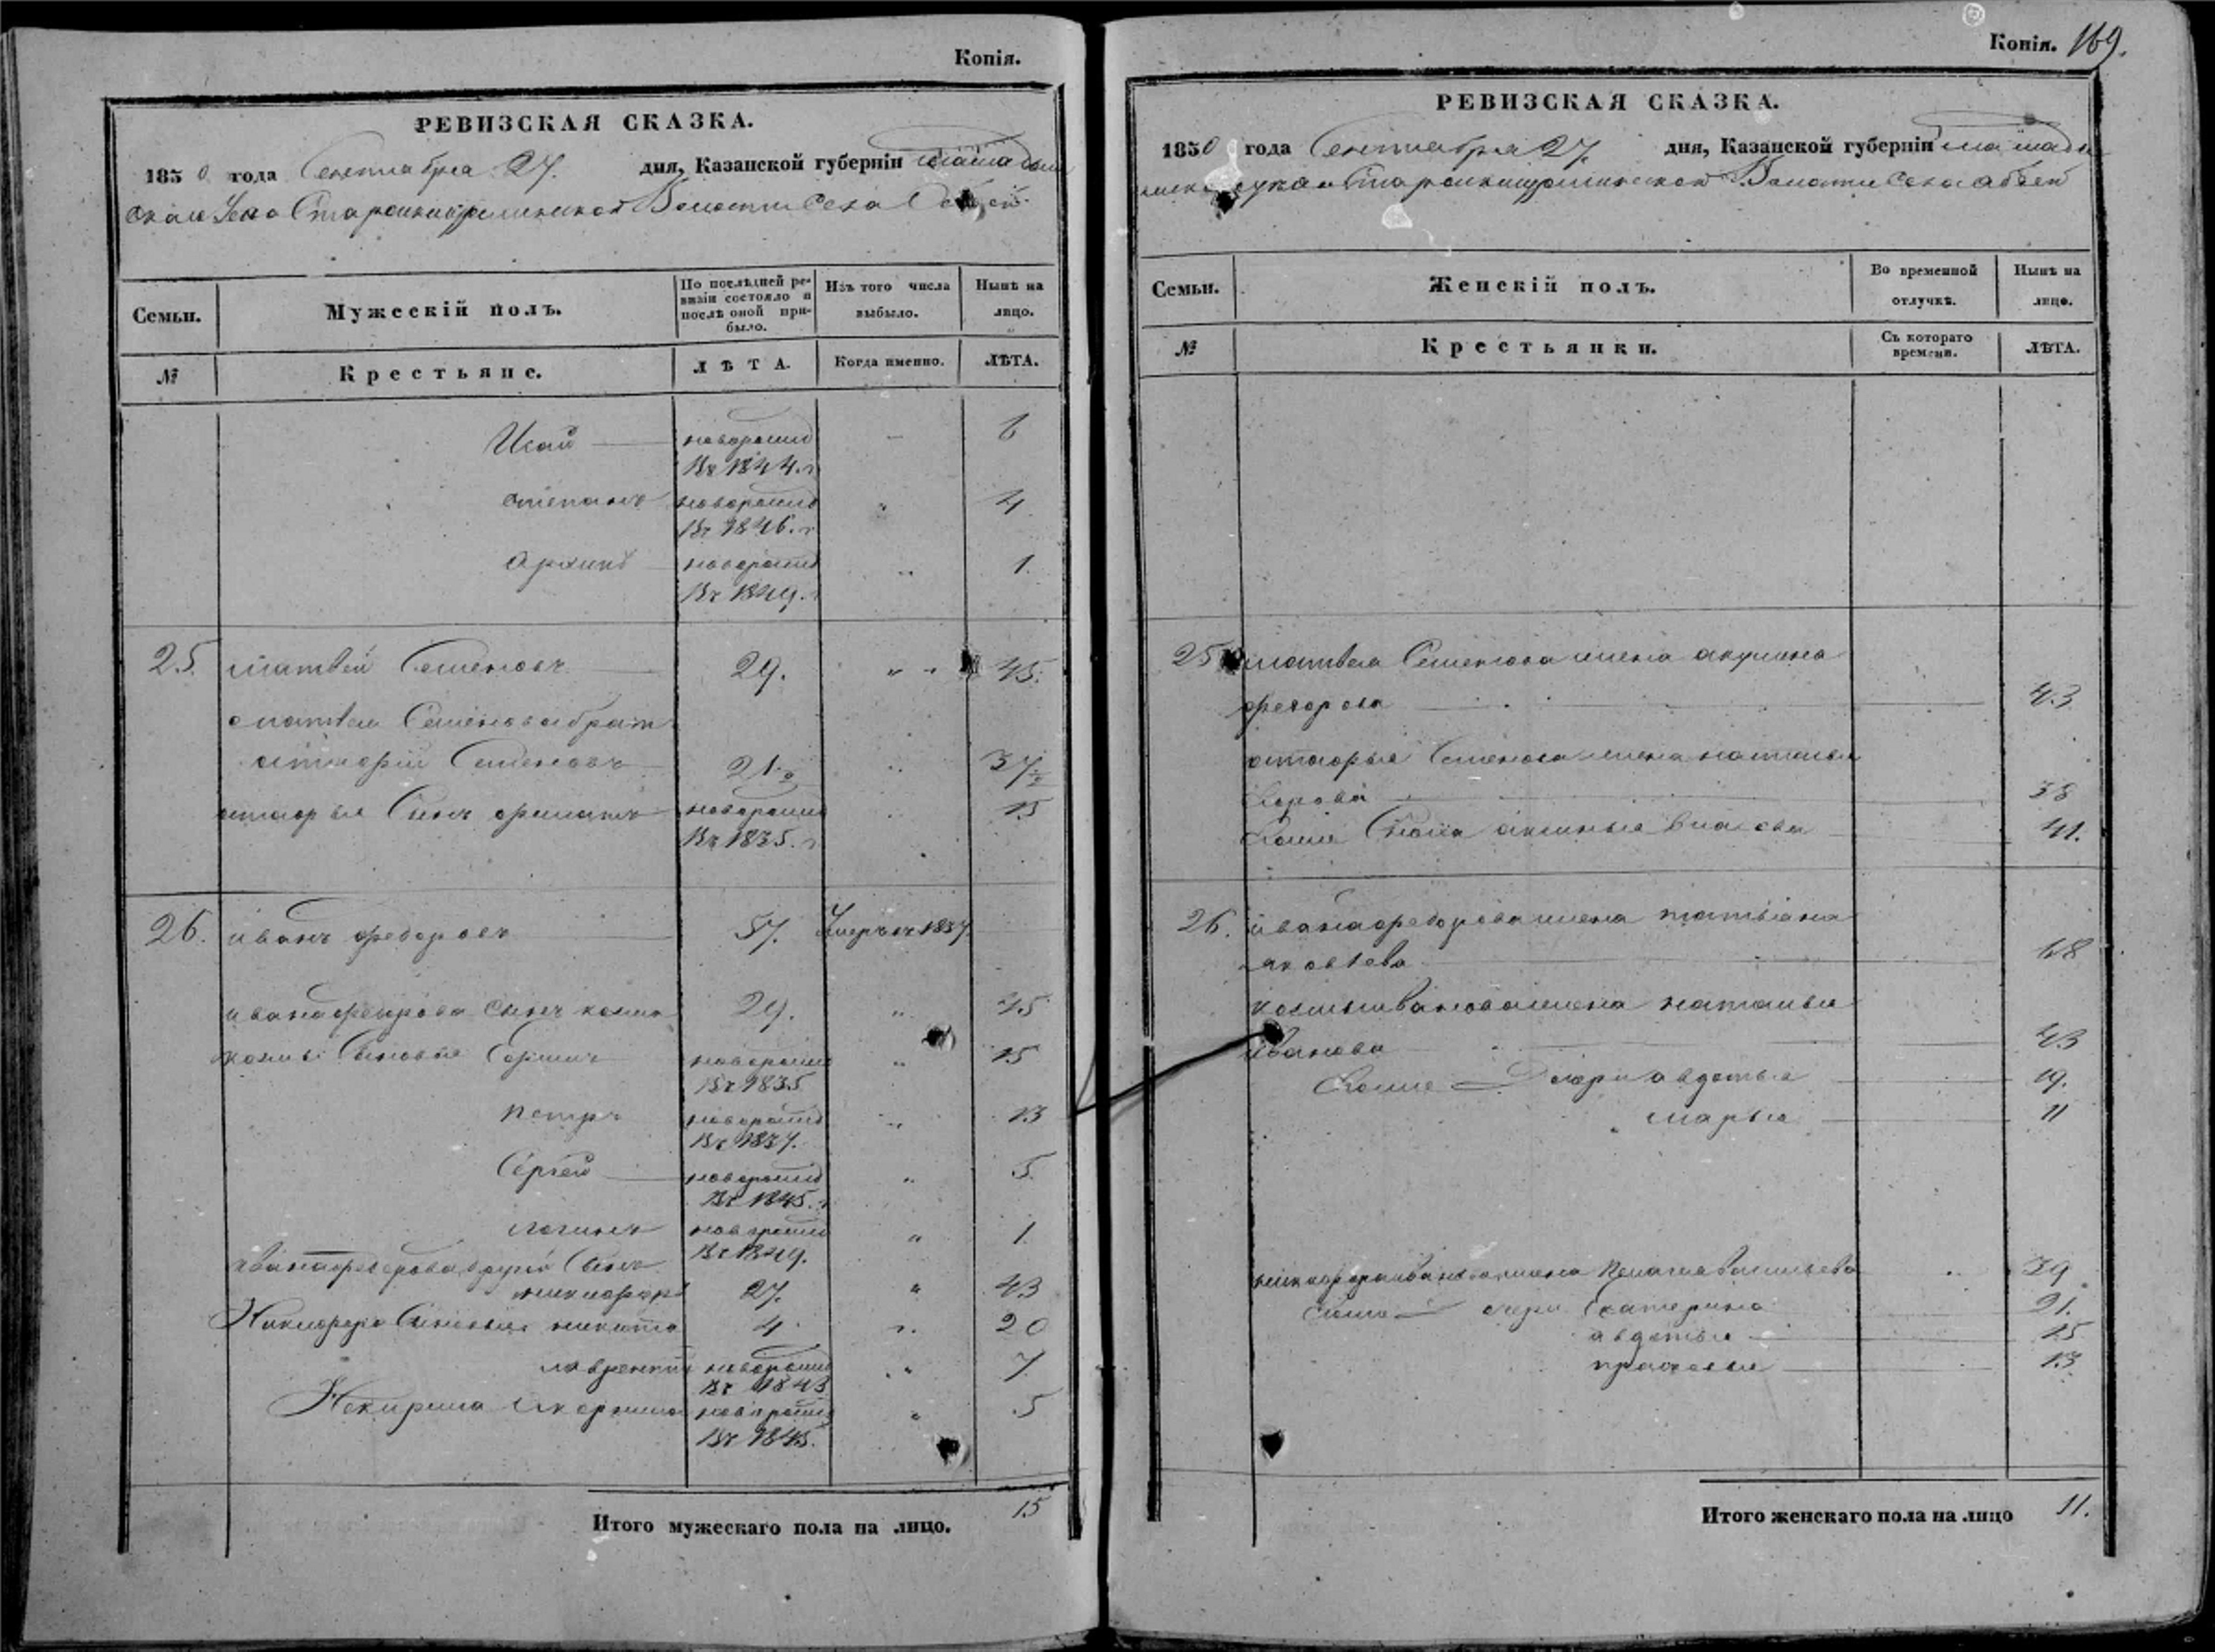 Копія.
РЕВИЗСКАЯ СКАЗКА.
1850 года Сентября 27. дня, Казанской губерніи Мамадыш
скаго Уезда Старокишемской Волости Села Абдей
Семьи. Мужескій полъ. По послѣдней ревизіи состояло и послѣ оной прибыло. Изъ того числа выбыло. Нынѣ на лицо.
№ Крестьяне. ЛѢТА. Когда именно. ЛѢТА.
Исай новорожд 6
въ 1844. г
степанъ новорожд " 4
въ 1846. г
архипъ новорожд " 1.
въ 1849. г
25. матвей Семеновъ 29. " " 45.
матвея Семенова брат
григорій Семеновъ 21 ½ " 37 ½
григорья Сынъ новорожд " 15
въ 1835. г
26. иванъ федоровъ 57. Умеръ въ 1837
ивана федорова сынъ козма 29. " 45
козмы Сыновья новорожд " 15
въ 1835
петръ новорожд " 13
въ 1837.
Сергей новорожд " 5.
въ 1845. г
логинъ новорожд " 1
въ 1849.
ивана федорова другой Сынъ
никифоръ 27. " 43
Никифора Сыновья никита 4 " 20
лаврентий новорожд " 7
въ 1843
новорожд " 5
въ 1845.
Итого мужескаго пола на лицо. 15
Копія. 169.
РЕВИЗСКАЯ СКАЗКА.
1850 года Сентября 27. дня, Казанской губерніи Мамады
Волости Села Абдей
Семьи. Женскій полъ. Во временной отлучкѣ. Нынѣ на лицо.
№ Крестьянки. Съ котораго времени. ЛѢТА.
25 матвея Семенова жена акулина
федорова 43
григорья Семенова жена наталья
38
11.
26. ивана федорова жена татьяна
яковлева 68
козмы иванова жена наталья
иванова 43
дочери авдотья 19.
марья 11
никифора иванова жена Пелагея васильева " 39
дочери Екатерина 21.
авдотья 15
13
Итого женскаго пола на лицо 11.